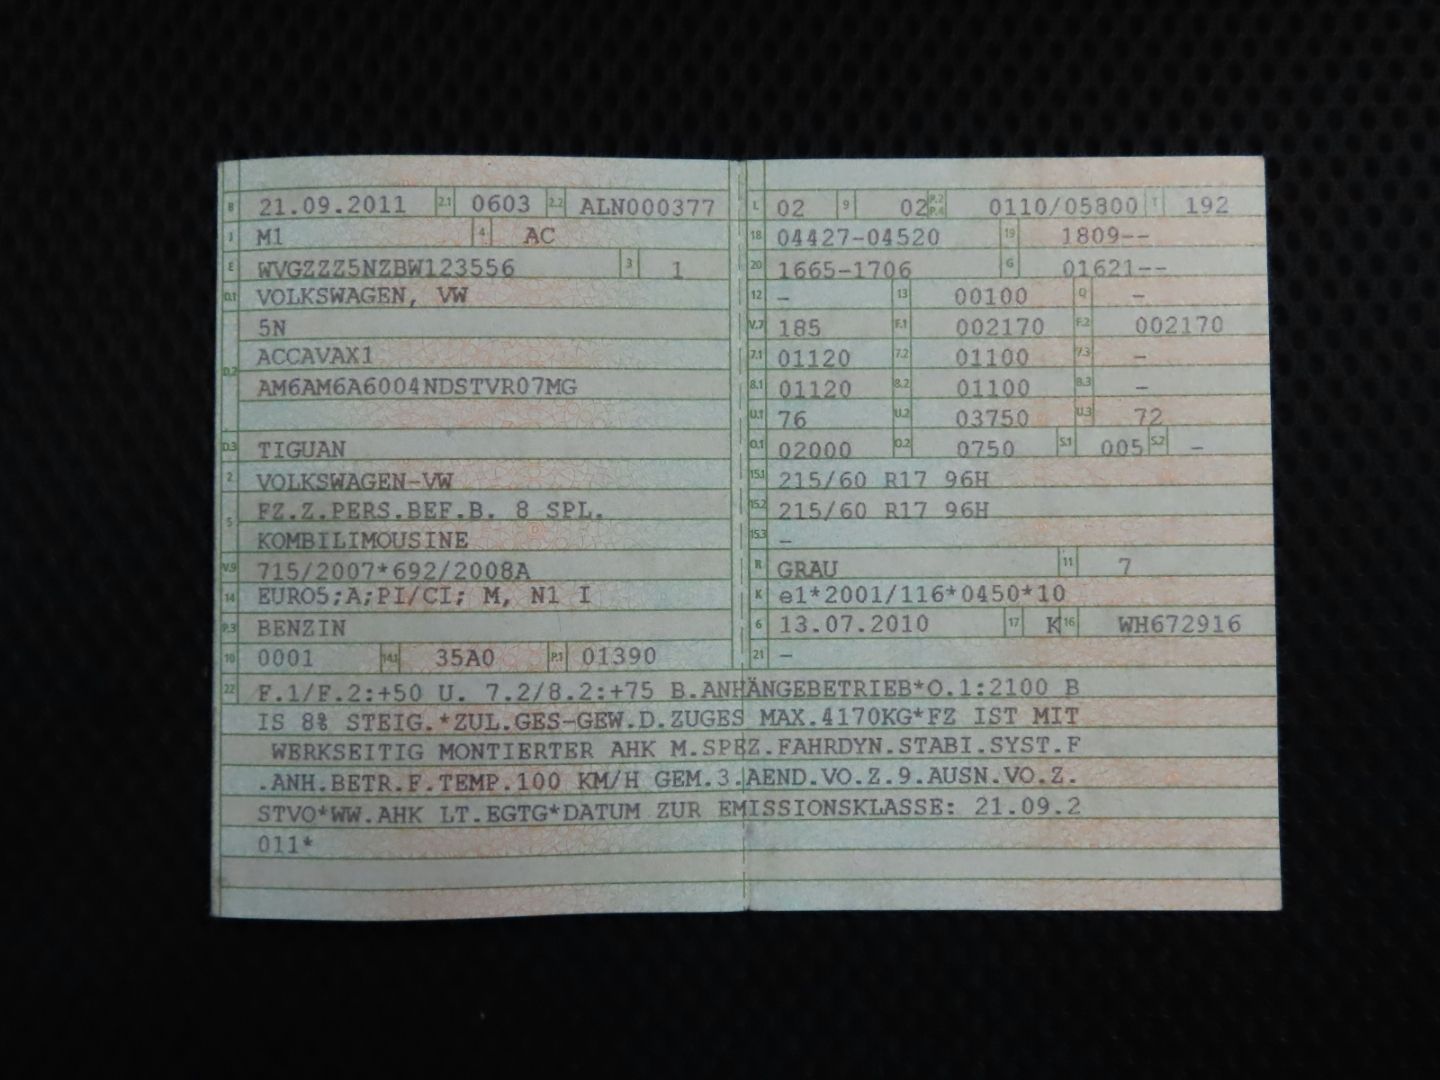 B 21.09.2011 2.1 0603 2.2 ALN000377
J M1 4 AC
E WVGZZZ5NZBW123556 3 1
D.1 VOLKSWAGEN, VW
5N
D.2 ACCAVAX1
AM6AM6A6004NDSTVR07MG
D.3 TIGUAN
2 VOLKSWAGEN-VW
5 FZ.Z.PERS.BEF.B. 8 SPL.
KOMBILIMOUSINE
V.9 715/2007*692/2008A
14 EURO5;A;PI/CI; M, N1 I
P.3 BENZIN
10 0001 14.1 35A0 P.1 01390
L 02 9 02 P.2 P.4 0110/05800 T 192
18 04427-04520 19 1809--
20 1665-1706 G 01621--
12 - 13 00100 Q -
V.7 185 F.1 002170 F.2 002170
7.1 01120 7.2 01100 7.3 -
8.1 01120 8.2 01100 8.3 -
U.1 76 U.2 03750 U.3 72
O.1 02000 O.2 0750 S.1 005 S.2 -
15.1 215/60 R17 96H
15.2 215/60 R17 96H
15.3 -
R GRAU 11 7
K e1*2001/116*0450*10
6 13.07.2010 17 K 16 WH672916
21 -
22 F.1/F.2:+50 U. 7.2/8.2:+75 B.ANHÄNGEBETRIEB*O.1:2100 B
IS 8% STEIG.*ZUL.GES-GEW.D.ZUGES MAX.4170KG*FZ IST MIT
WERKSEITIG MONTIERTER AHK M.SPEZ.FAHRDYN.STABI.SYST.F
.ANH.BETR.F.TEMP.100 KM/H GEM.3.AEND.VO.Z.9.AUSN.VO.Z.
STVO*WW.AHK LT.EGTG*DATUM ZUR EMISSIONSKLASSE: 21.09.2
011*